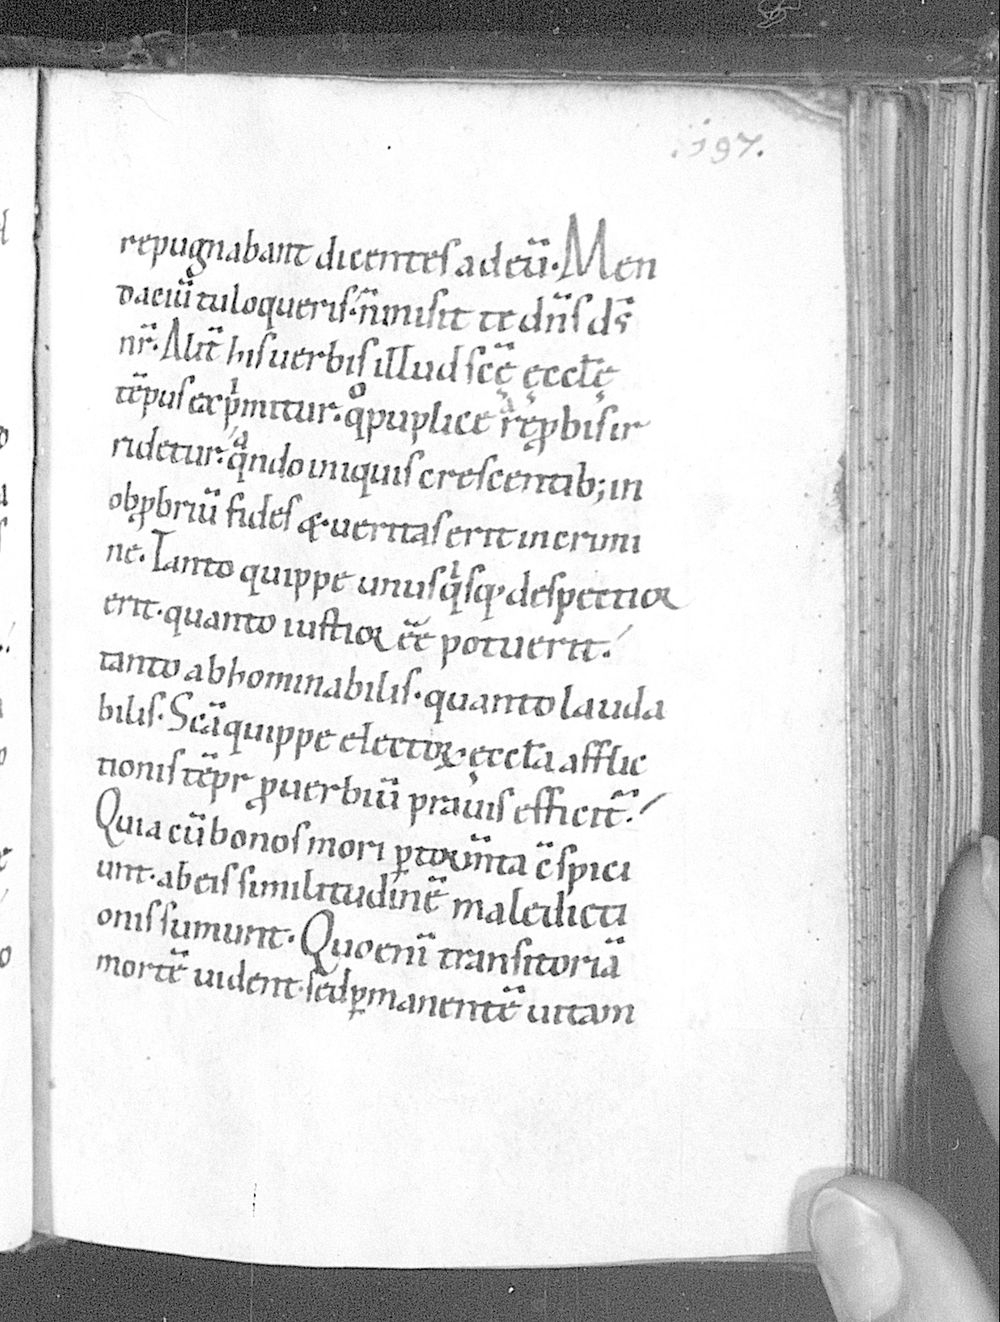 .197.
repugnabant dicentes ad eū. Men
daciū tu loqueris. n̄ misit te dn̄s ds̄
nr̄. Alit̄ his uerbis illud scę̄ ęccłę
tēpus exp̍mitur. qͦ puplice a rep̱bis ir
ridetur. qᵃndo iniquis crescentib; in
obp̱briū fides & ueritas erit in crimi
ne. Tanto quippe unusqͥsq; despectior
erit. quanto iustior ēē potuerit.
tanto abhominabilis. quanto lauda
bilis. Scā quippe electoꝝ ęccła afflic
tionis tēpr ꝓuerbiū prauis efficit̄.
Quia cū bonos mori ꝑ tor̄nta c̄spici
unt. ab eis similitudinē maledicti
onis sumunt. Quo enī transitoriā
mortē uident. sed ꝑmanentē uitam